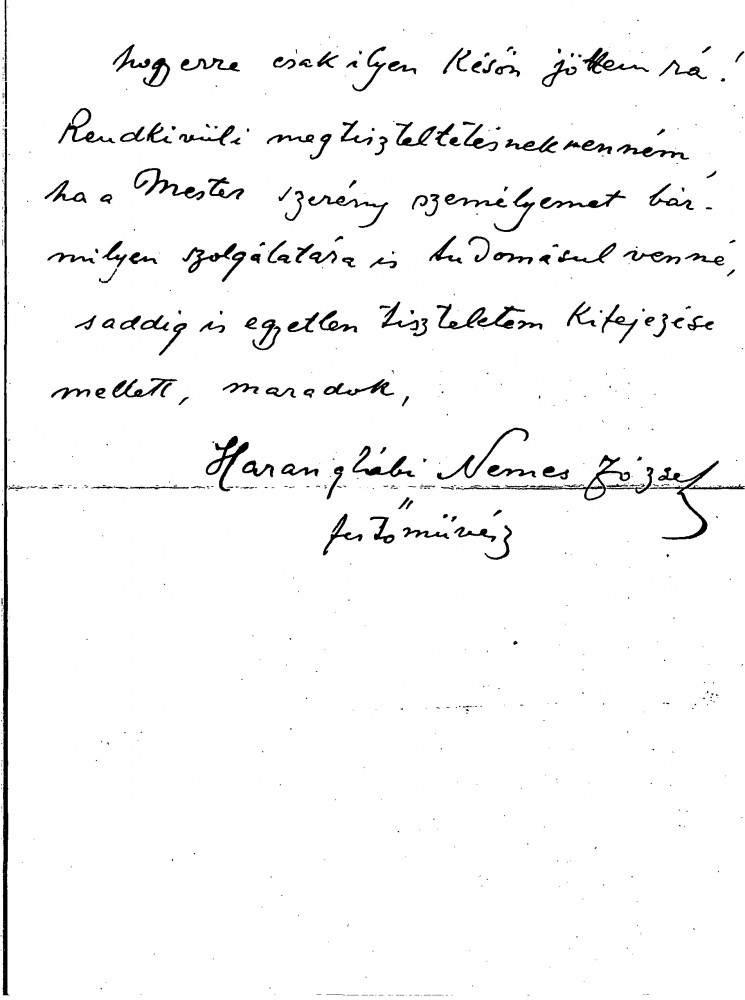 hogy erre csak ilyen későn jöttem rá!
Rendkivüli megtiszteltetésnek venném,
ha a Mester szerény személyemet bár-
milyen szolgálatára is tudomásul venné,
s addig is egyetlen tiszteletem kifejezése
mellett, maradok,
Haranglábi Nemes József
festőművész